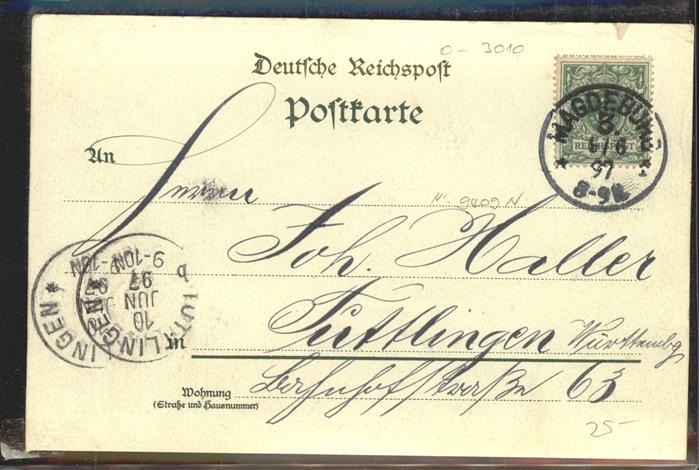 0-3010
Deutsche Reichspost
Postkarte
MAGDEBURG
REICHSPOST
97
8-9N
An
Herrn
9409 N
Joh. Haller
TUTTLINGEN
10
JUN
97
9-10N
in Tuttlingen Württembg
Wohnung
(Straße und Hausnummer)
Bahnhofstraße 63
25-